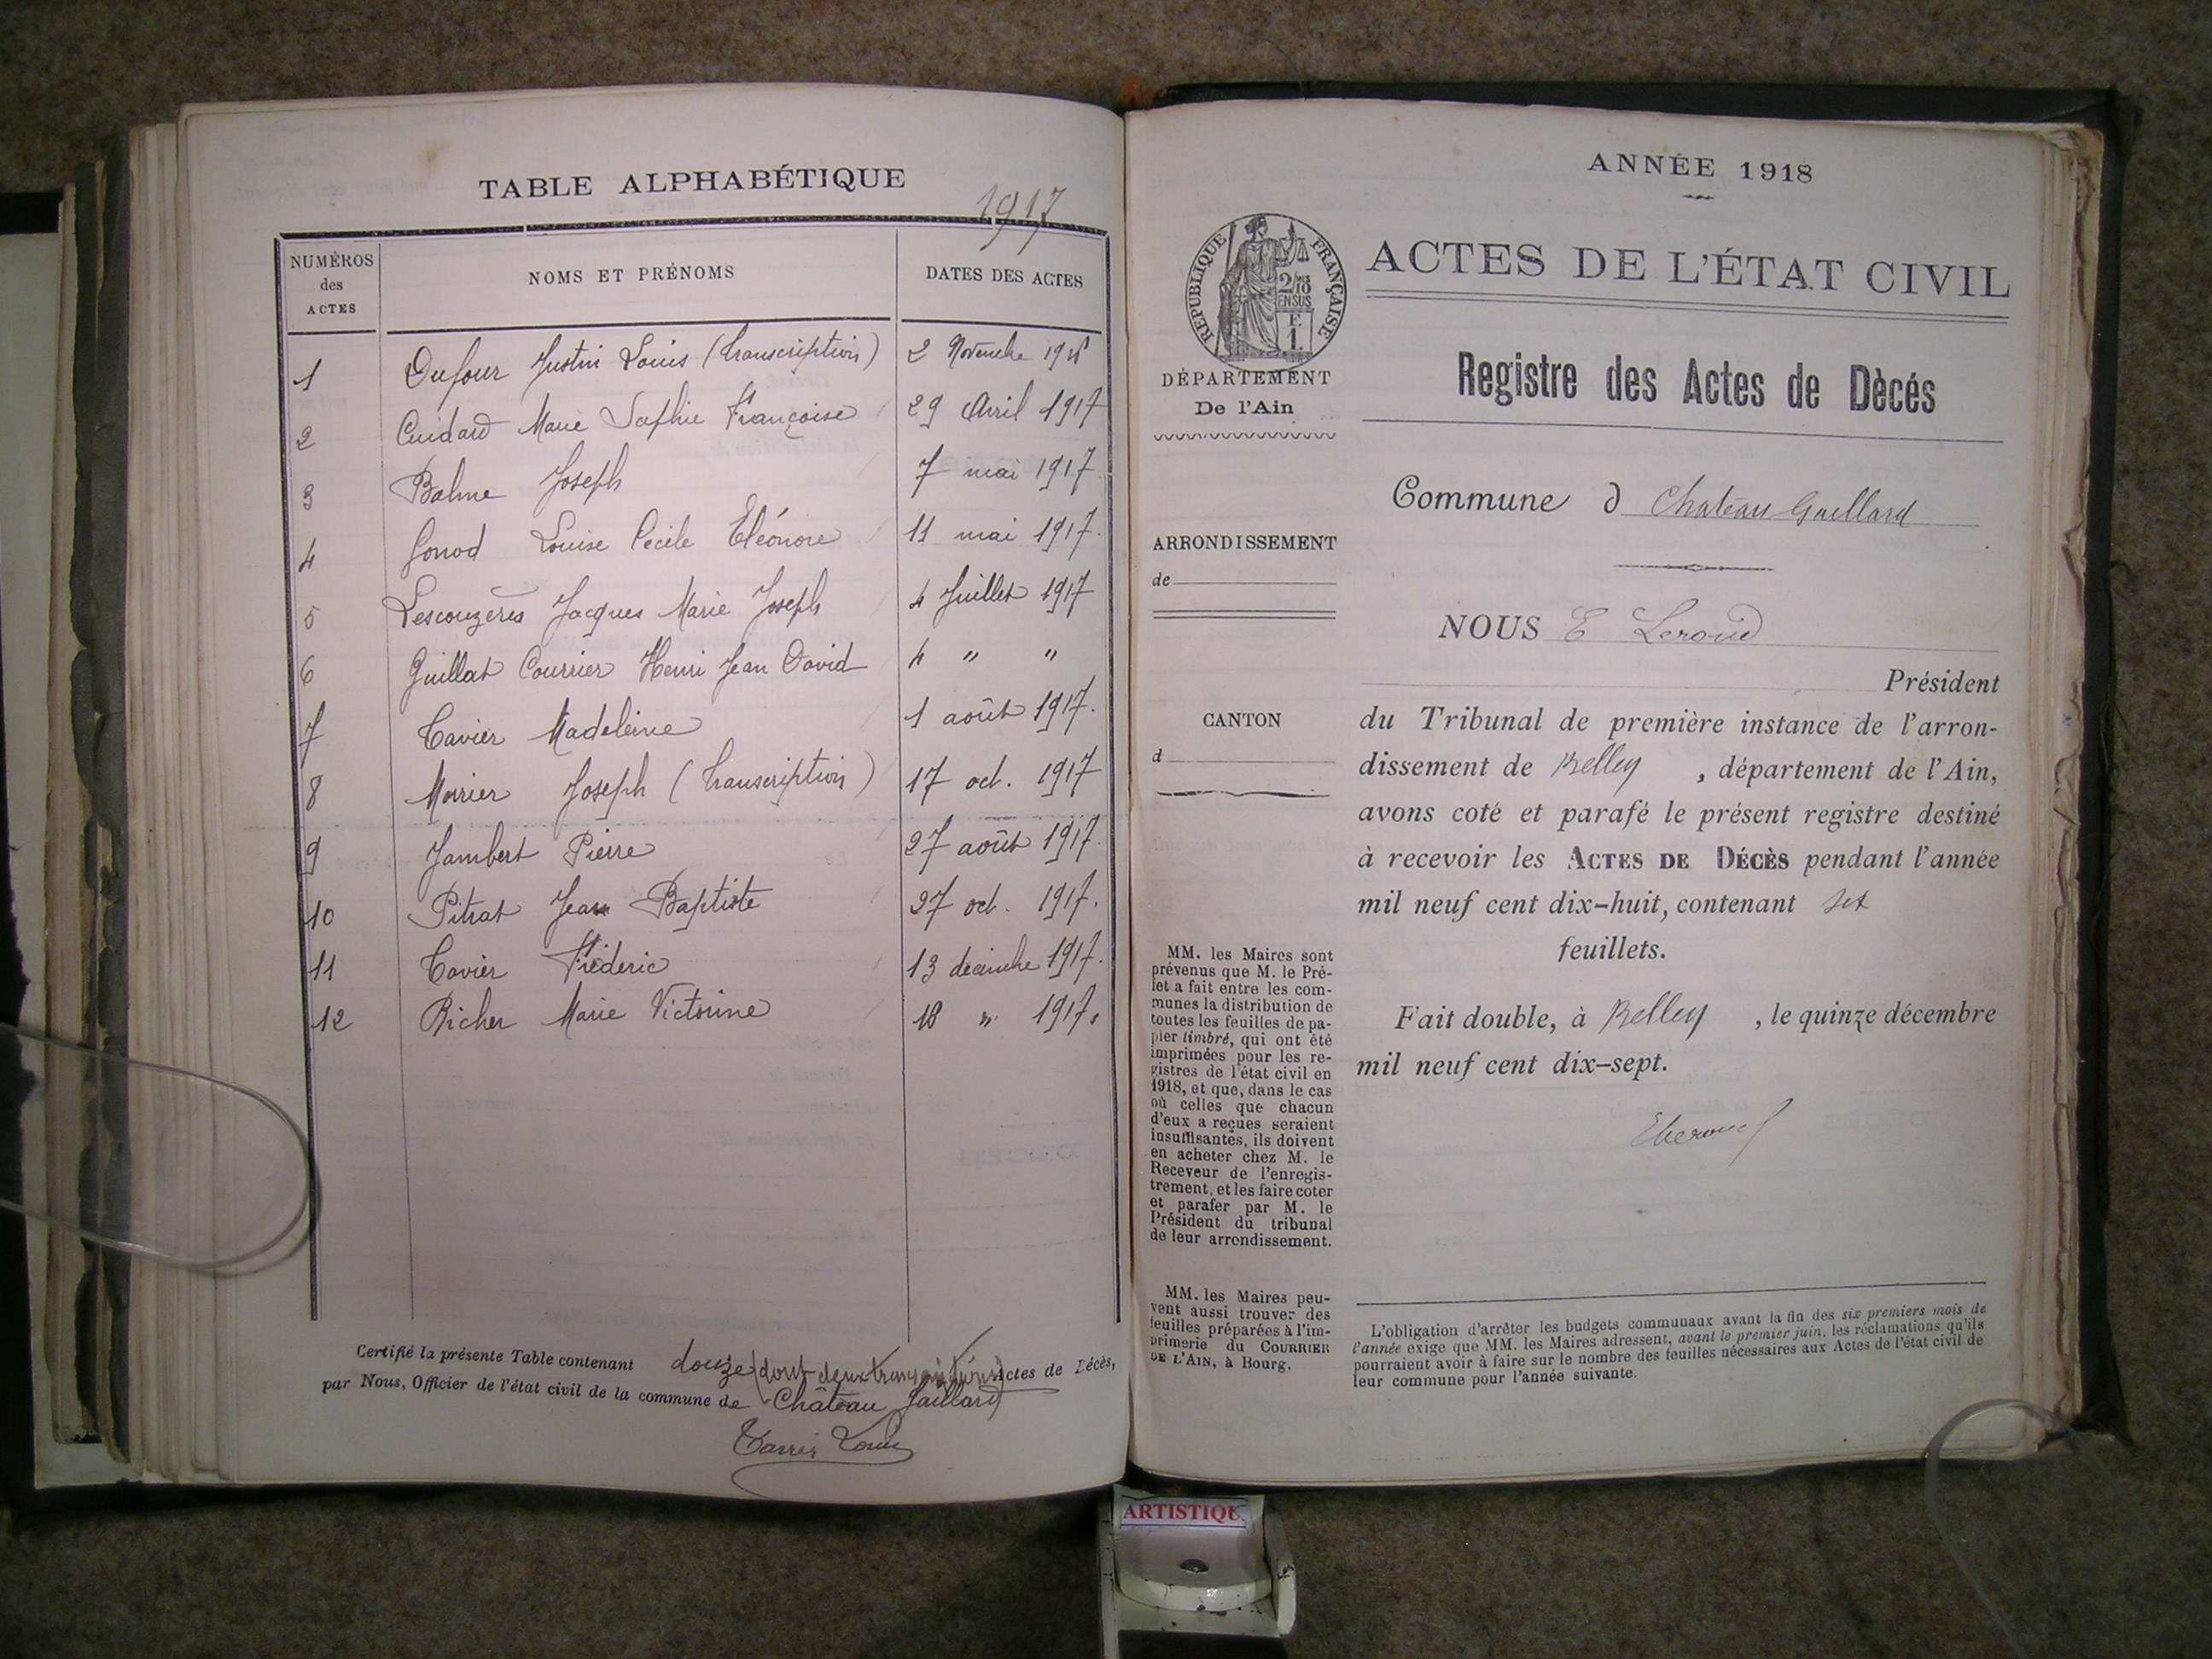 TABLE ALPHABÉTIQUE
1917
NUMÉROS des ACTES
NOMS ET PRÉNOMS
DATES DES ACTES
1 Dufour Justin Louis (transcription) 2 Novembre
2 Cuidard Marie Sophie Françoise 29 Avril 1917
3 Balme Joseph 7 mai 1917
4 Gonod Louise Cécile Eléonore 11 mai 1917
5 Lescouzères Jacques Marie Joseph 4 Juillet 1917
6 Guillat Courrier Henri Jean David 4 " "
7 Tavier Madeleine 1 août 1917.
8 Morrier Joseph (transcription) 17 oct. 1917
9 Jambert Pierre 27 août 1917.
10 Pitrat Jean Baptiste 27 oct. 1917.
11 Tavier Frédéric 13 décembre 1917.
12 Richer Marie Victorine 18 " 1917.
Certifié la présente Table contenant douze (dont deux transcriptions) Actes de Décès,
par Nous, Officier de l'état civil de la commune de Château Gaillard
ANNÉE 1918
RÉPUBLIQUE FRANÇAISE
2/10
EN SUS
F.
1.
ACTES DE L'ÉTAT CIVIL
DÉPARTEMENT
De l'Ain
Registre des Actes de Dècés
Commune d Chateau Gaillard
ARRONDISSEMENT
de
NOUS E Leroud
Président
CANTON
d
du Tribunal de première instance de l'arron-
dissement de Belley , département de l'Ain,
avons coté et parafé le présent registre destiné
à recevoir les ACTES DE DÉCÈS pendant l'année
mil neuf cent dix-huit, contenant six
feuillets.
Fait double, à Belley , le quinze décembre
mil neuf cent dix-sept.
MM. les Maires sont
prévenus que M. le Pré-
fet a fait entre les com-
munes la distribution de
toutes les feuilles de pa-
pier timbré, qui ont été
imprimées pour les re-
gistres de l'état civil en
1918, et que, dans le cas
où celles que chacun
d'eux a reçues seraient
insuffisantes, ils doivent
en acheter chez M. le
Receveur de l'enregis-
trement, et les faire coter
et parafer par M. le
Président du tribunal
de leur arrondissement.
MM. les Maires peu-
vent aussi trouver des
feuilles préparées à l'im-
primerie du COURRIER
DE L'AIN, à Bourg.
L'obligation d'arrêter les budgets communaux avant la fin des six premiers mois de
l'année exige que MM. les Maires adressent, avant le premier juin, les réclamations qu'ils
pourraient avoir à faire sur le nombre des feuilles nécessaires aux Actes de l'état civil de
leur commune pour l'année suivante.
ARTISTIQU